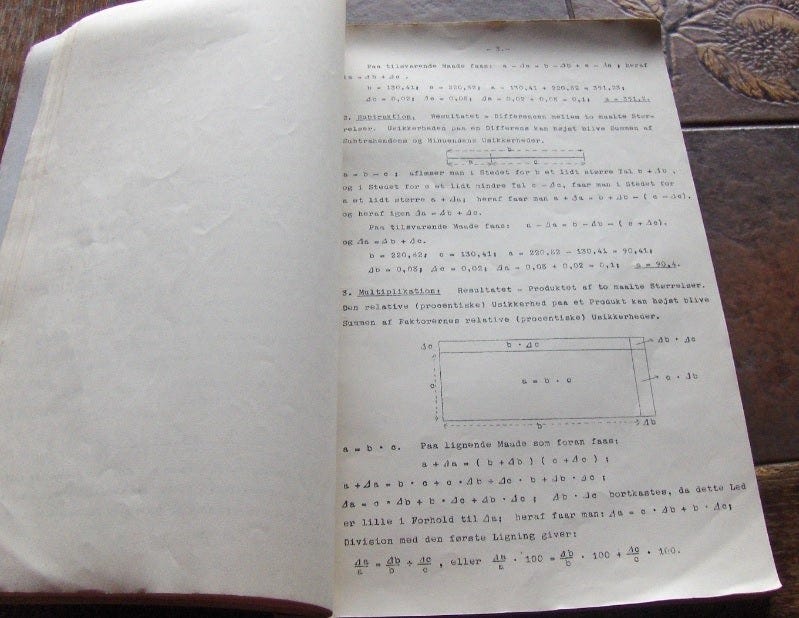 - 3.-
Paa tilsvarende Maade faas: a - Δa = b - Δb + c - Δc ; heraf
Δa = Δb + Δc .
b = 130,41; c = 220,82; a = 130,41 + 220,82 = 351,23;
Δb = 0,02; Δc = 0,08; Δa = 0,02 + 0,08 = 0,1; a = 351,2.
2. Subtraktion. Resultatet = Differensen mellem to maalte Stør-
relser. Usikkerheden paa en Differens kan højst blive Summen af
Subtrahendens og Minuendens Usikkerheder.
b
a c
a = b - c ; aflæser man i Stedet for b et lidt større Tal b + Δb ,
og i Stedet for c et lidt mindre Tal c - Δc, faar man i Stedet for
a et lidt større a + Δa; heraf faar man a + Δa = b + Δb - ( c - Δc),
og heraf igen Δa = Δb + Δc.
Paa tilsvarende Maade faas: a - Δa = b - Δb - ( c + Δc),
og Δa = Δb + Δc.
b = 220,82; c = 130,41; a = 220,82 - 130,41 = 90,41;
Δb = 0,08; Δc = 0,02; Δa = 0,08 + 0,02 = 0,1; a = 90,4.
3. Multiplikation: Resultatet = Produktet af to maalte Størrelser.
Den relative (procentiske) Usikkerhed paa et Produkt kan højst blive
Summen af Faktorernes relative (procentiske) Usikkerheder.
Δc b · Δc Δb · Δc
c a = b · c c · Δb
b Δb
a = b · c. Paa lignende Maade som foran faas:
a + Δa = ( b + Δb ) ( c + Δc ) ;
a + Δa = b · c + c · Δb + Δc · b + Δb · Δc ;
Δa = c · Δb + b · Δc + Δb · Δc ; Δb · Δc bortkastes, da dette Led
er lille i Forhold til Δa; heraf faar man: Δa = c · Δb + b · Δc;
Division med den første Ligning giver:
Δa/a = Δb/b + Δc/c , eller Δa/a · 100 = Δb/b · 100 + Δc/c · 100.